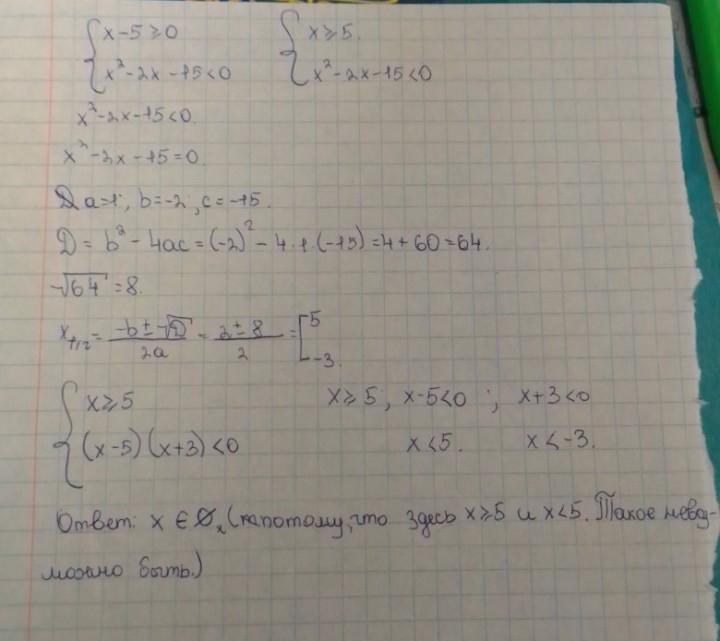 { x-5≥0 { x≥5.
{ x²-2x-15<0 { x²-2x-15<0
x²-2x-15<0.
x²-2x-15=0.
a=1, b=-2, c=-15.
D = b²-4ac = (-2)²-4·1·(-15)=4+60=64.
√64=8.
x₁,₂ = (-b±√D)/2a = (2±8)/2 = [5
-3.
{ x≥5 x≥5, x-5<0 ; x+3<0
{ (x-5)(x+3)<0 x<5. x<-3.
Ответ: x ∈ Ø, (потому, что здесь x≥5 и x<5. Такое невоз-
можно быть.)